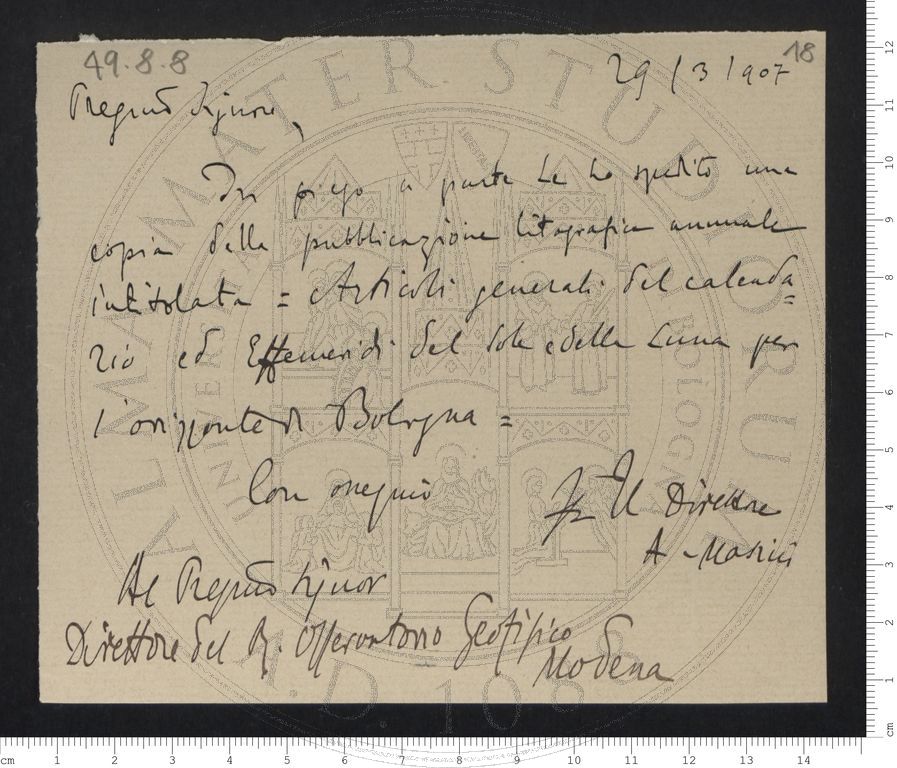 49.8.8
18
29/3/907
Pregmo Signore,
In piego a parte Le ho spedito una
copia della pubblicazione litografica annuale
intitolata = Articoli generali del calenda=
rio ed Effemeridi del Sole e della Luna per
l'orizzonte di Bologna =
Con ossequio
Il Direttore
A. Masini
Al Pregmo Signor
Direttore del R. Osservatorio Geofisico
Modena
ALMA MATER STUDIORUM
A.D. 1088
cm 1 2 3 4 5 6 7 8 9 10 11 12 13 14
cm 1 2 3 4 5 6 7 8 9 10 11 12